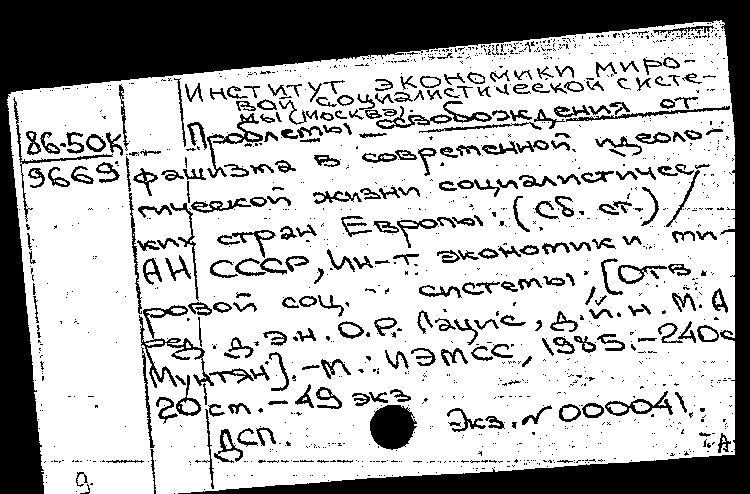 Институт экономики миро-
вой социалистической систе-
мы (Москва).
86-50К
9669
Проблемы освобождения от
фашизма в современной идеоло-
гической жизни социалистичес-
ких стран Европы: (Сб. ст.) /
АН СССР, Ин-т экономики ми-
ровой соц. системы; [Отв.
ред. д.э.н. О.Р. Лацис, д.и.н. М.А
Мунтян]. - М.: ИЭМСС, 1985. - 240с
20 см. - 49 экз.
ДСП.
Экз. № 000041.
Т.А
9.